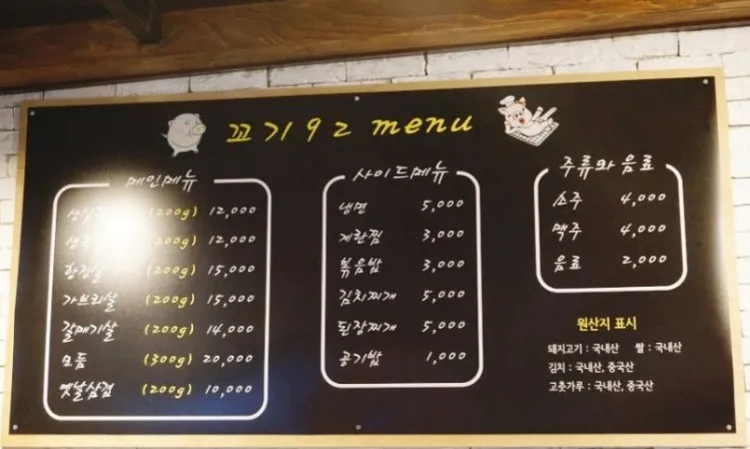 꼬기92 menu
메인메뉴
(200g) 12,000
(200g) 12,000
항정살 (200g) 15,000
가브리살 (200g) 15,000
갈매기살 (200g) 14,000
모듬 (300g) 20,000
옛날삼겹 (200g) 10,000
사이드메뉴
냉면 5,000
계란찜 3,000
볶음밥 3,000
김치찌개 5,000
된장찌개 5,000
공기밥 1,000
주류와 음료
소주 4,000
맥주 4,000
음료 2,000
원산지 표시
돼지고기 : 국내산 쌀 : 국내산
김치 : 국내산, 중국산
고춧가루 : 국내산, 중국산